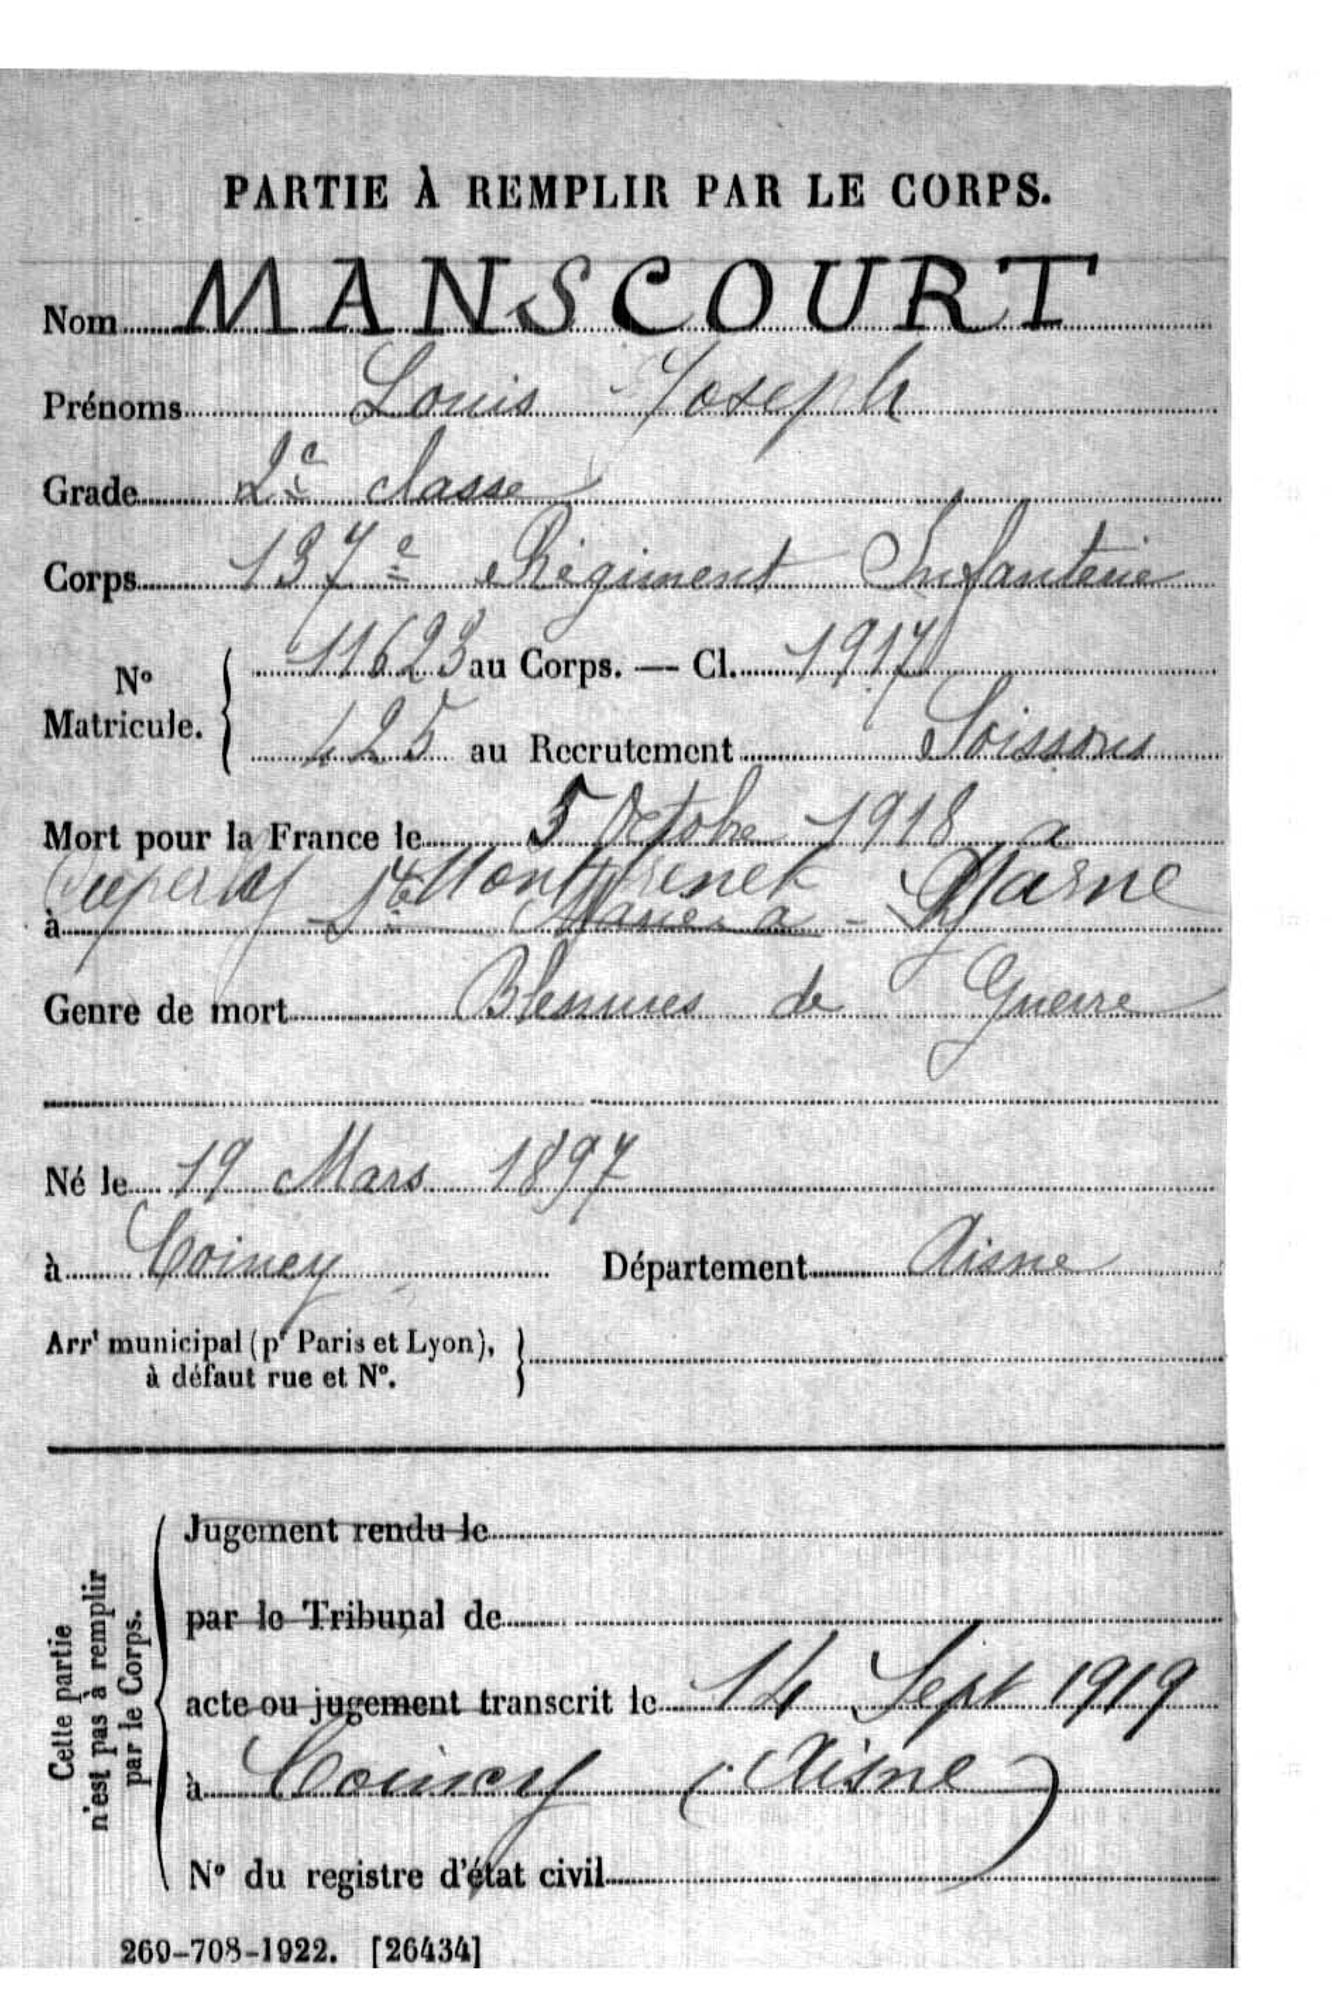 PARTIE À REMPLIR PAR LE CORPS.
Nom MANSCOURT
Prénoms Louis Joseph
Grade 2e classe
Corps 137e Régiment Infanterie
No Matricule. { 11623 au Corps. — Cl. 1917
425 au Recrutement Soissons
Mort pour la France le 5 Octobre 1918 a
à Marne
Genre de mort Blessures de Guerre
Né le 19 Mars 1897
à Coincy Département Aisne
Arrt municipal (pr Paris et Lyon),
à défaut rue et No.
Cette partie
n'est pas à remplir
par le Corps.
Jugement rendu le
par le Tribunal de
acte ou jugement transcrit le 14 Sept 1919
à Coincy (Aisne)
No du registre d'état civil
269-708-1922. [26434]